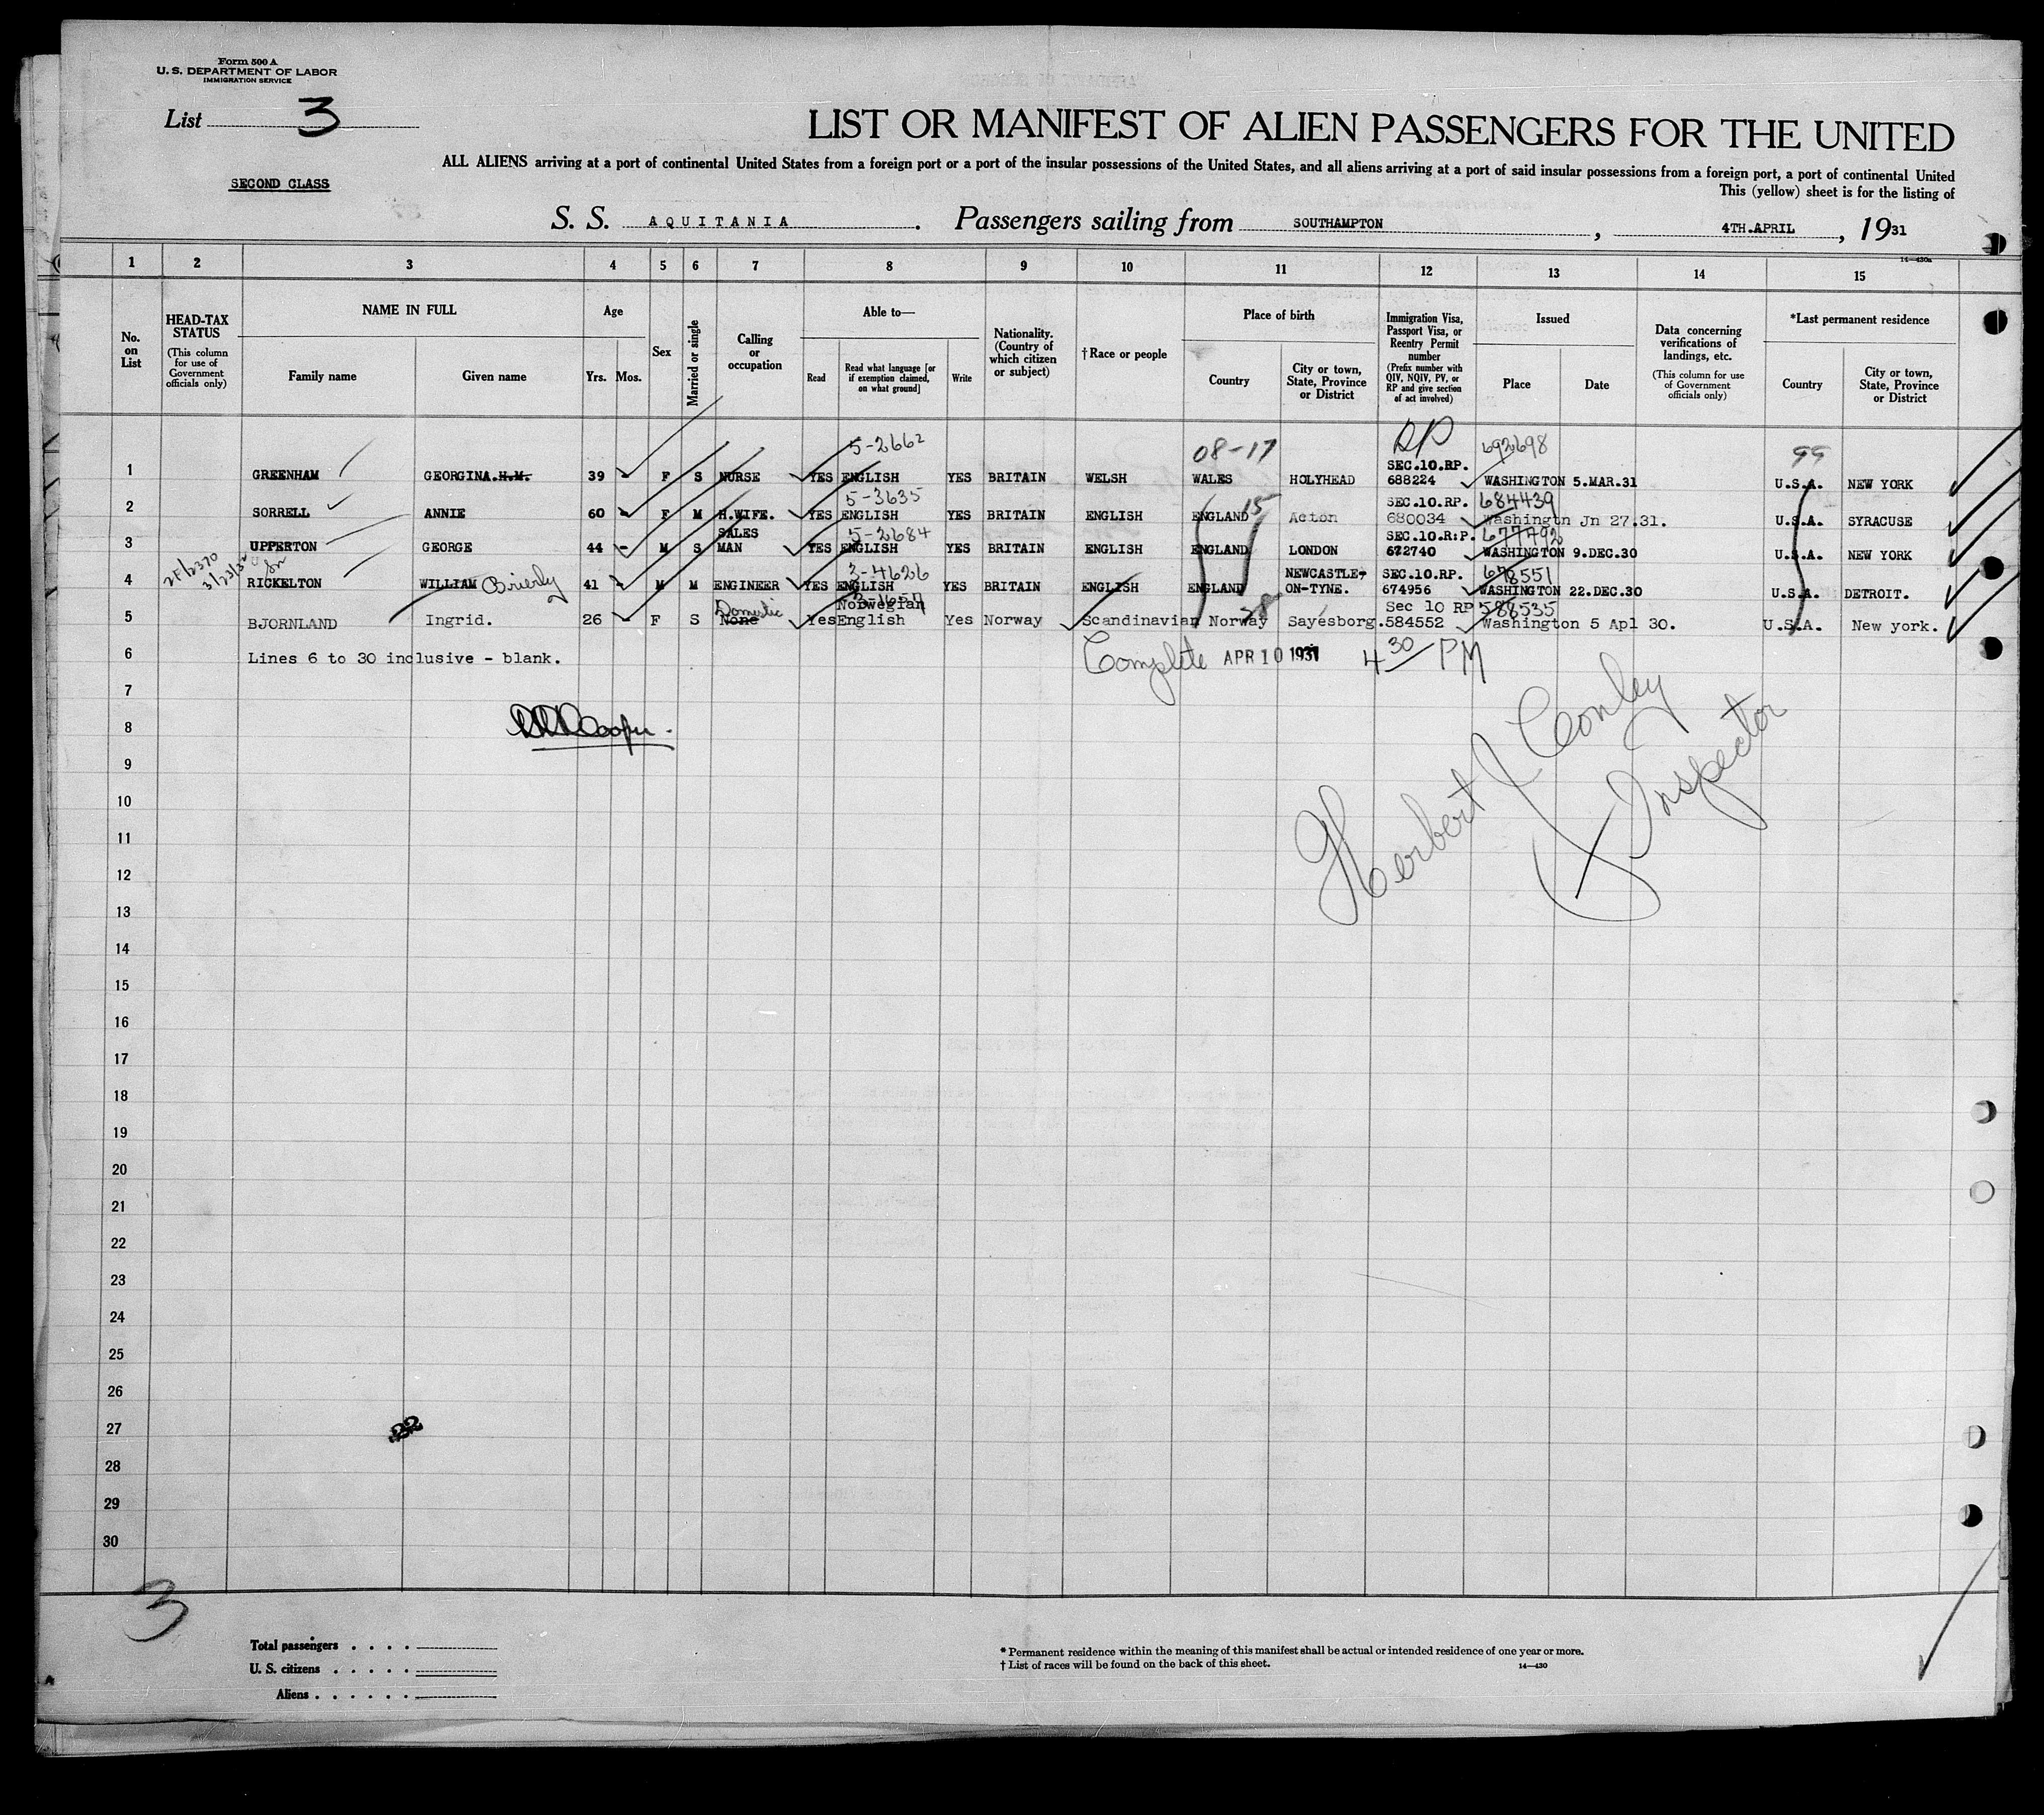 Form 500 A
U. S. DEPARTMENT OF LABOR
IMMIGRATION SERVICE
List 3
LIST OR MANIFEST OF ALIEN PASSENGERS FOR THE UNITED
ALL ALIENS arriving at a port of continental United States from a foreign port or a port of the insular possessions of the United States, and all aliens arriving at a port of said insular possessions from a foreign port, a port of continental United
SECOND CLASS
This (yellow) sheet is for the listing of
S. S. AQUITANIA. Passengers sailing from SOUTHAMPTON, 4TH.APRIL, 1931
14—430a
1 2 3 4 5 6 7 8 9 10 11 12 13 14 15
No. on List
HEAD-TAX STATUS (This column for use of Government officials only)
NAME IN FULL
Family name Given name
Age
Yrs. Mos.
Sex
Married or single
Calling or occupation
Able to—
Read Read what language [or if exemption claimed, on what ground] Write
Nationality. (Country of which citizen or subject)
†Race or people
Place of birth
Country City or town, State, Province or District
Immigration Visa, Passport Visa, or Reentry Permit number (Prefix number with QIV, NQIV, PV, or RP and give section of act involved)
Issued
Place Date
Data concerning verifications of landings, etc. (This column for use of Government officials only)
*Last permanent residence
Country City or town, State, Province or District
5-2662 08-17 RP 692698 99
SEC.10.RP.
1 GREENHAM GEORGINA.H.M. 39 F S NURSE YES ENGLISH YES BRITAIN WELSH WALES HOLYHEAD 688224 WASHINGTON 5.MAR.31 U.S.A. NEW YORK
5-3635 15 SEC.10.RP. 684439
2 SORRELL ANNIE 60 F M H.WIFE. YES ENGLISH YES BRITAIN ENGLISH ENGLAND Acton 680034 Washingtn Jn 27.31. U.S.A. SYRACUSE
SALES 5-2684 SEC.10.R:P. 677792
3 UPPERTON GEORGE 44 M S MAN YES ENGLISH YES BRITAIN ENGLISH ENGLAND LONDON 672740 WASHINGTON 9.DEC.30 U.S.A. NEW YORK
2F/2370 3/23/32 3-4626 NEWCASTLE- SEC.10.RP. 678551
4 RICKELTON WILLIAM Brierly 41 M M ENGINEER YES ENGLISH YES BRITAIN ENGLISH ENGLAND ON-TYNE. 674956 WASHINGTON 22.DEC.30 U.S.A. DETROIT.
Domestic 3-1657 Norwegian 28 Sec 10 RP 588535
5 BJORNLAND Ingrid. 26 F S None Yes English Yes Norway Scandinavian Norway Sayesborg. 584552 Washington 5 Apl 30. U.S.A. New york.
6 Lines 6 to 30 inclusive - blank. Complete APR 10 1931 4 30 PM
7
8 Cooper.
Herbert J Conley
Inspector
9
10
11
12
13
14
15
16
17
18
19
20
21
22
23
24
25
26
27 22
28
29
30
3
Total passengers
U. S. citizens
Aliens
* Permanent residence within the meaning of this manifest shall be actual or intended residence of one year or more.
† List of races will be found on the back of this sheet. 14—430